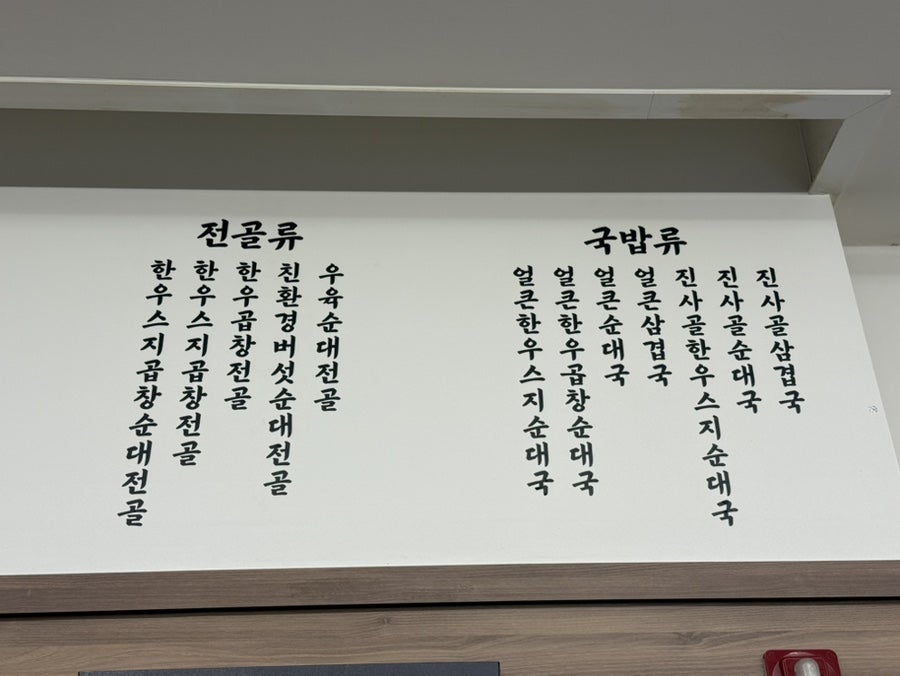 전골류
우육순대전골
친환경버섯순대전골
한우곱창전골
한우스지곱창전골
한우스지곱창순대전골
국밥류
진사골삼겹국
진사골순대국
진사골한우스지순대국
얼큰삼겹국
얼큰순대국
얼큰한우곱창순대국
얼큰한우스지순대국